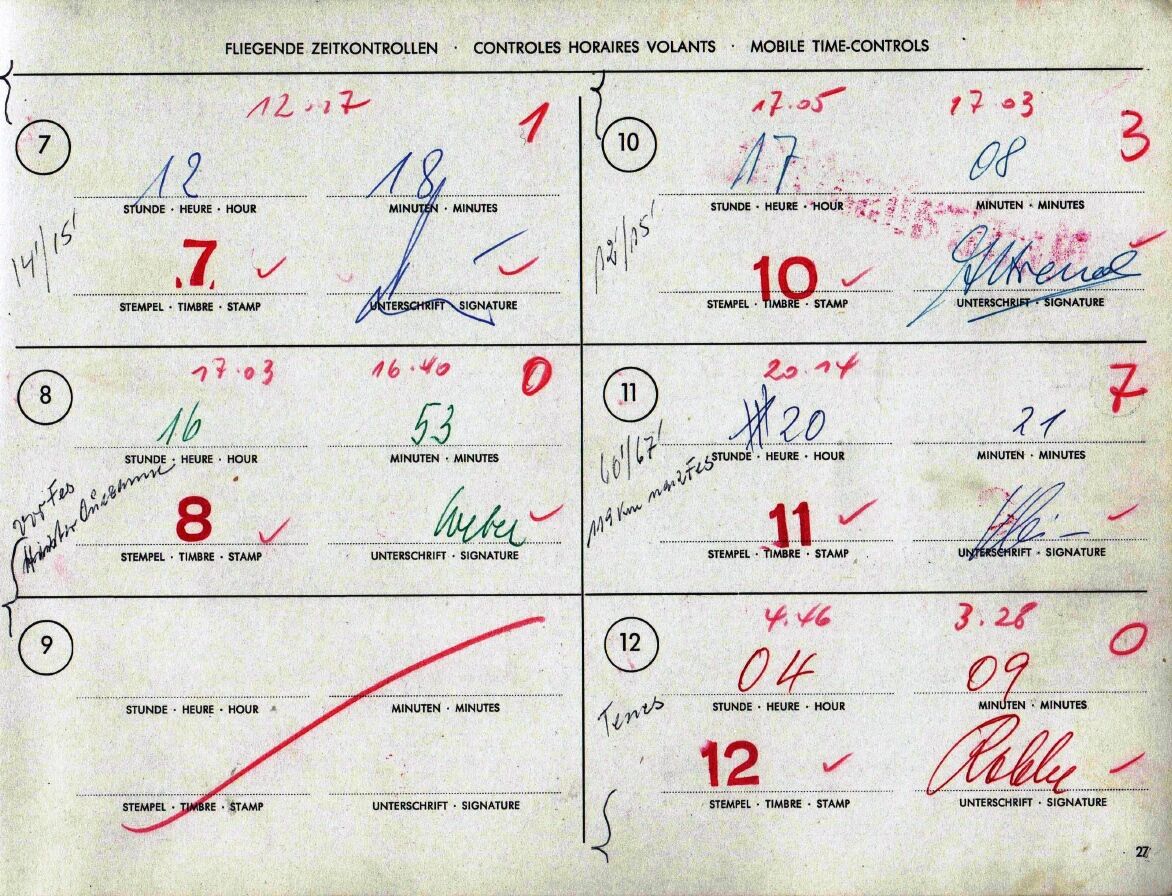 FLIEGENDE ZEITKONTROLLEN · CONTROLES HORAIRES VOLANTS · MOBILE TIME-CONTROLS
12.17
1
7
12 18
STUNDE · HEURE · HOUR MINUTEN · MINUTES
14'/15'
.7.
STEMPEL · TIMBRE · STAMP UNTERSCHRIFT · SIGNATURE
17.03 16.40 0
8
16 53
STUNDE · HEURE · HOUR MINUTEN · MINUTES
8 Weber
STEMPEL · TIMBRE · STAMP UNTERSCHRIFT · SIGNATURE
9
STUNDE · HEURE · HOUR MINUTEN · MINUTES
STEMPEL · TIMBRE · STAMP UNTERSCHRIFT · SIGNATURE
17.05 17 03 3
10
17 08
STUNDE · HEURE · HOUR MINUTEN · MINUTES
12'/15'
10
STEMPEL · TIMBRE · STAMP UNTERSCHRIFT · SIGNATURE
20.14 7
11
20 21
STUNDE · HEURE · HOUR MINUTEN · MINUTES
60'/67'
119 km
11
STEMPEL · TIMBRE · STAMP UNTERSCHRIFT · SIGNATURE
4.46 3.28 0
12
04 09
STUNDE · HEURE · HOUR MINUTEN · MINUTES
12
STEMPEL · TIMBRE · STAMP UNTERSCHRIFT · SIGNATURE
27